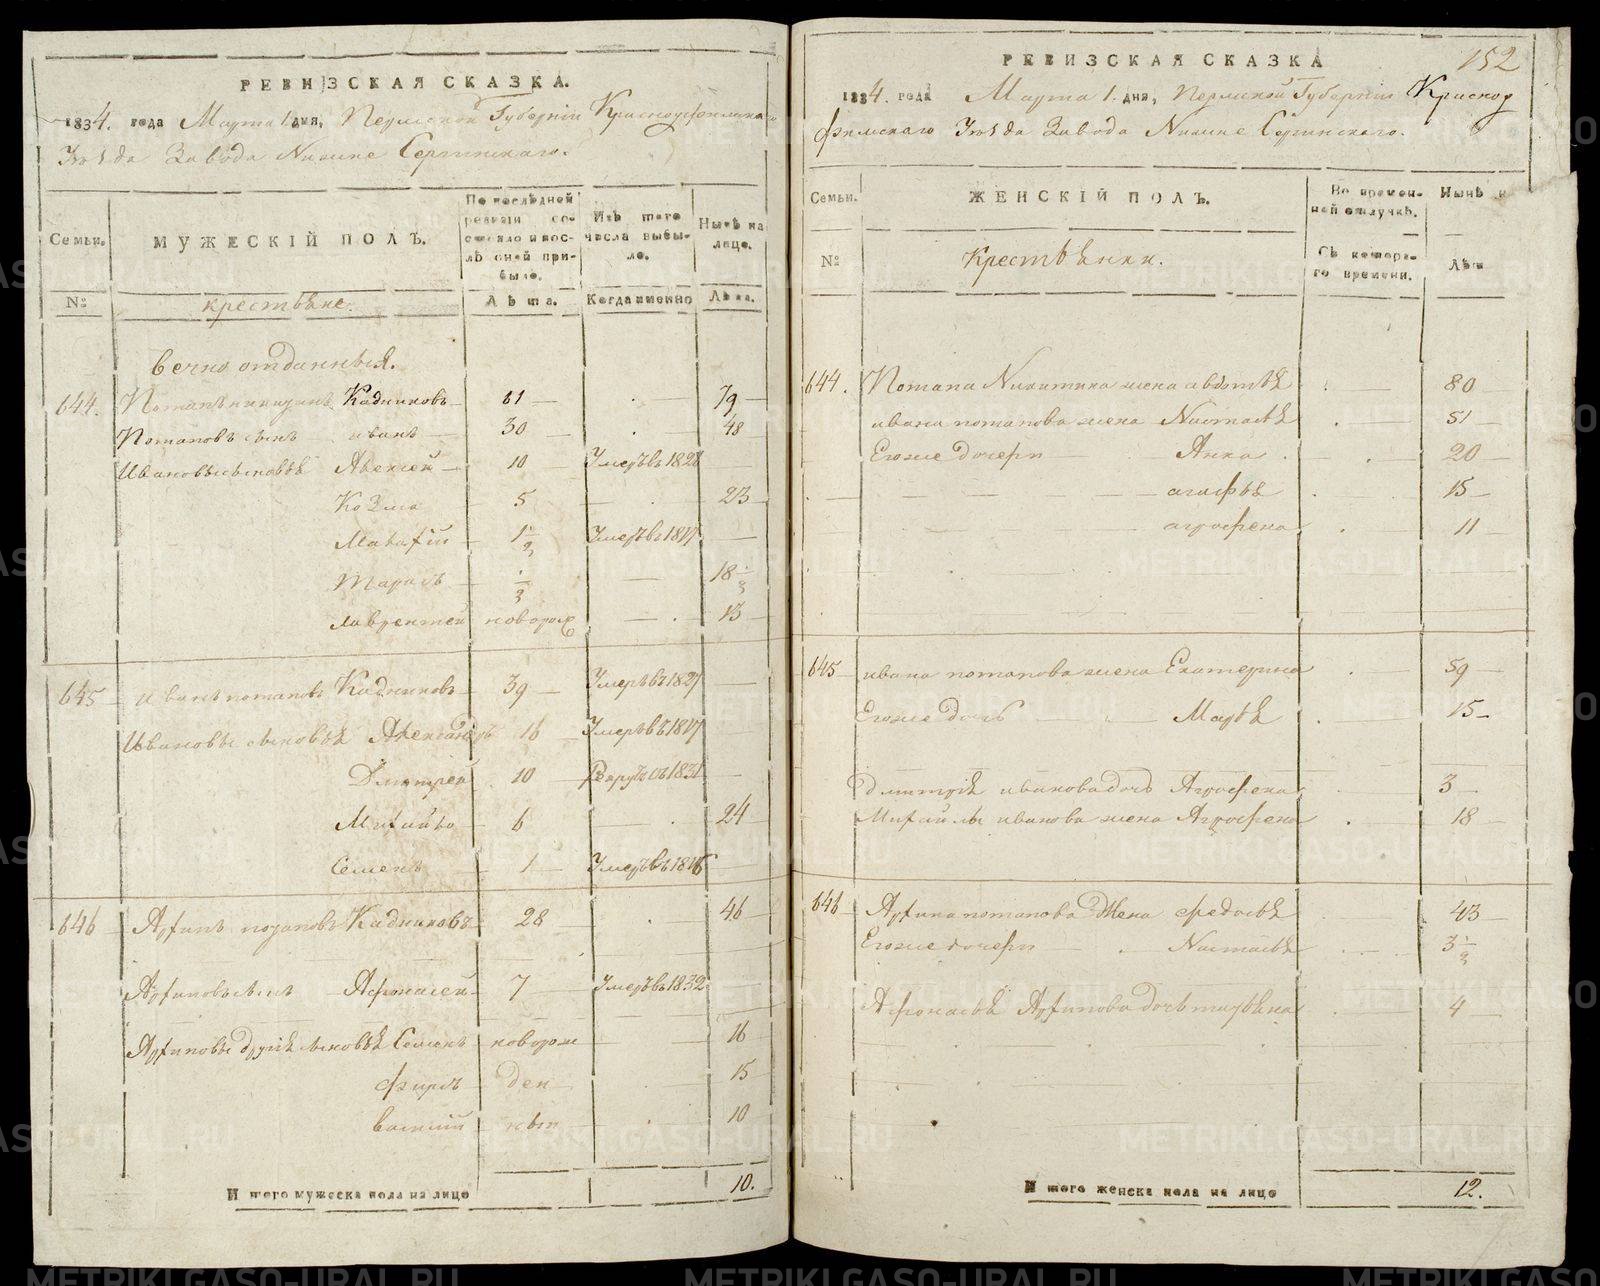 РЕВИЗСКАЯ СКАЗКА.
1834. года Марта 1 дня, Пермской Губернiи Красноуфимскаго
Уѣзда Завода Нижне Сергинскаго.
Семьи.
МУЖЕСКІЙ ПОЛЪ.
По послѣдней ревизіи состояло и послѣ оной прибыло.
Изъ того числа выбыло.
Нынѣ на лице.
№
крестьяне.
Лѣта.
Когда именно
Лѣта.
вечно отданныя.
644. Потапъ никитинъ Кадниковъ 61 79
Потаповъ сынъ иванъ 30 48
Ивановы сыновья Алексей 10 Умеръ въ 1828
Козма 5 23
Матфiй 1 1/2 Умеръ въ 1817
Тарасъ 1/2 18 1/2
лаврентей новорож 13
645 иванъ потаповъ Кадниковъ 39 Умеръ въ 1827
Ивановы сыновья Александръ 16 Умеръ въ 1817
Дмитрей 10 Врекруты 1831
Михайло 6 24
Семенъ 1 Умеръ въ 1816
646 Архипъ потаповъ Кадниковъ 28 46
Архиповъ сынъ Афонасей 7 Умеръ въ 1832
Архиповы другiя сыновья Семенъ новорож 16
фирсъ ден 15
василiй ныя 10
Итого мужеска пола на лицо 10.
152
РЕВИЗСКАЯ СКАЗКА
1834. года Марта 1. дня, Пермской Губернiи Красноу
фимскаго Уѣзда Завода Нижне Сергинскаго.
Семьи.
ЖЕНСКІЙ ПОЛЪ.
Во временной отлучкѣ.
Нынѣ н
№
Крестьянки.
Съ котораго времени.
Лѣт
644. Потапа Никитина жена авдотья 80
ивана потапова жена Настасья 51
Егоже дочери Анна 20
агафья 15
агрофена 11
645 ивана потапова жена Екатерина 59
Егоже дочь Марья 15
дмитрiя иванова дочь Агрофена 3
Михайлы иванова жена Агрофена 18
646 Архипа потапова Жена федосья 43
Егоже дочери Настасья 3 1/2
Афонасья Архипова дочь матрена 4
Итого женска пола на лицо 12.
METRIKI.GASO-URAL.RU